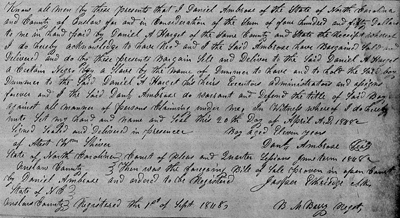 Know all men by these presents that I Daniel Ambrose of the State of North Carolina
and County of Onslow for and in Consideration of the Sum of four hundred and fifty Dollars
to me in hand paid by Daniel A Hargel of the Same County and State the Receipt whereof
I do hereby acknowledge to have Recd and I the Said Ambrose have Bargained Sold and
Delivered and do by these presents Bargain Sell and Deliver to the Said Daniel A Hargel
a Certain Negro Boy a Slave by the name of to have and to hold the Said boy
to the Said Daniel A Hargel his heirs Executors administrators and assigns
forever and I the Said Danl Ambrose do warrant and Defend the title of Said Boy
against all manner of persons Claiming under me In Witness whereof I do hereby
Set my hand and name and Seal this 20th day of April A.D. 1848
Signed Sealed and delivered in presence Boy aged Eleven years
of Attest Danl Ambrose Seal
State of North Carolina Court of Pleas and Quarter Sessions June term 1848
Onslow County Then was the foregoing Bill of Sale proven in open Court
by Daniel Ambrose and ordered to be Registered Jasper Etheridge Clk
State of N C
Onslow County Registered the 1st of Sept 1848 B